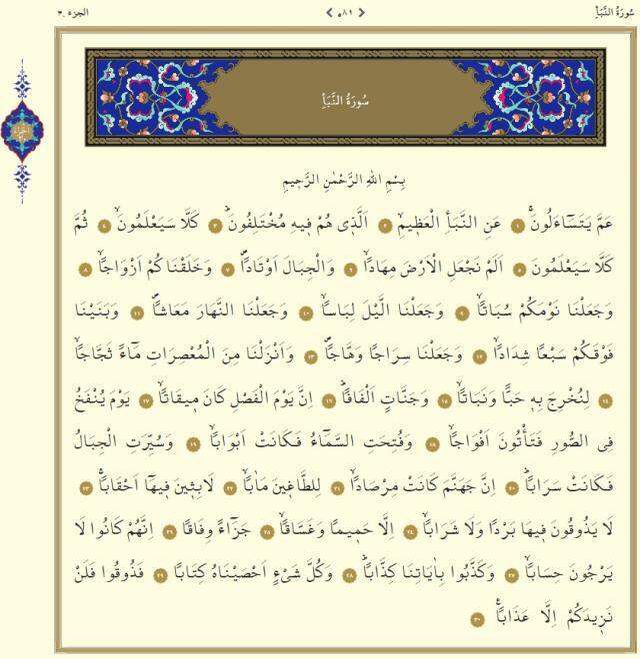 سُورَةُ النَّبَأِ
‹ ٥٨١ ›
الجزء ٣٠
سُورَةُ النَّبَأِ
بِسْمِ اللّٰهِ الرَّحْمٰنِ الرَّحِيمِ
عَمَّ يَتَسَٓاءَلُونَۚ ١ عَنِ النَّبَأِ الْعَظِيمِۙ ٢ اَلَّذِي هُمْ فِيهِ مُخْتَلِفُونَۜ ٣ كَلَّا سَيَعْلَمُونَۙ ٤ ثُمَّ
كَلَّا سَيَعْلَمُونَ ٥ اَلَمْ نَجْعَلِ الْاَرْضَ مِهَادًاۙ ٦ وَالْجِبَالَ اَوْتَادًاۖ ٧ وَخَلَقْنَاكُمْ اَزْوَاجًاۙ ٨
وَجَعَلْنَا نَوْمَكُمْ سُبَاتًاۙ ٩ وَجَعَلْنَا الَّيْلَ لِبَاسًاۙ ١٠ وَجَعَلْنَا النَّهَارَ مَعَاشًاۖ ١١ وَبَنَيْنَا
فَوْقَكُمْ سَبْعًا شِدَادًاۙ ١٢ وَجَعَلْنَا سِرَاجًا وَهَّاجًاۖ ١٣ وَاَنْزَلْنَا مِنَ الْمُعْصِرَاتِ مَٓاءً ثَجَّاجًاۙ
١٤ لِنُخْرِجَ بِهِ حَبًّا وَنَبَاتًاۙ ١٥ وَجَنَّاتٍ اَلْفَافًاۜ ١٦ اِنَّ يَوْمَ الْفَصْلِ كَانَ مِيقَاتًاۙ ١٧ يَوْمَ يُنْفَخُ
فِي الصُّورِ فَتَأْتُونَ اَفْوَاجًاۙ ١٨ وَفُتِحَتِ السَّمَٓاءُ فَكَانَتْ اَبْوَابًاۙ ١٩ وَسُيِّرَتِ الْجِبَالُ
فَكَانَتْ سَرَابًاۜ ٢٠ اِنَّ جَهَنَّمَ كَانَتْ مِرْصَادًاۙ ٢١ لِلطَّاغِينَ مَاٰبًاۙ ٢٢ لَابِثِينَ فِيهَٓا اَحْقَابًاۚ ٢٣
لَا يَذُوقُونَ فِيهَا بَرْدًا وَلَا شَرَابًاۙ ٢٤ اِلَّا حَمِيمًا وَغَسَّاقًاۙ ٢٥ جَزَٓاءً وِفَاقًاۜ ٢٦ اِنَّهُمْ كَانُوا لَا
يَرْجُونَ حِسَابًاۙ ٢٧ وَكَذَّبُوا بِاٰيَاتِنَا كِذَّابًاۜ ٢٨ وَكُلَّ شَيْءٍ اَحْصَيْنَاهُ كِتَابًاۙ ٢٩ فَذُوقُوا فَلَنْ
نَزِيدَكُمْ اِلَّا عَذَابًا۟ ٣٠